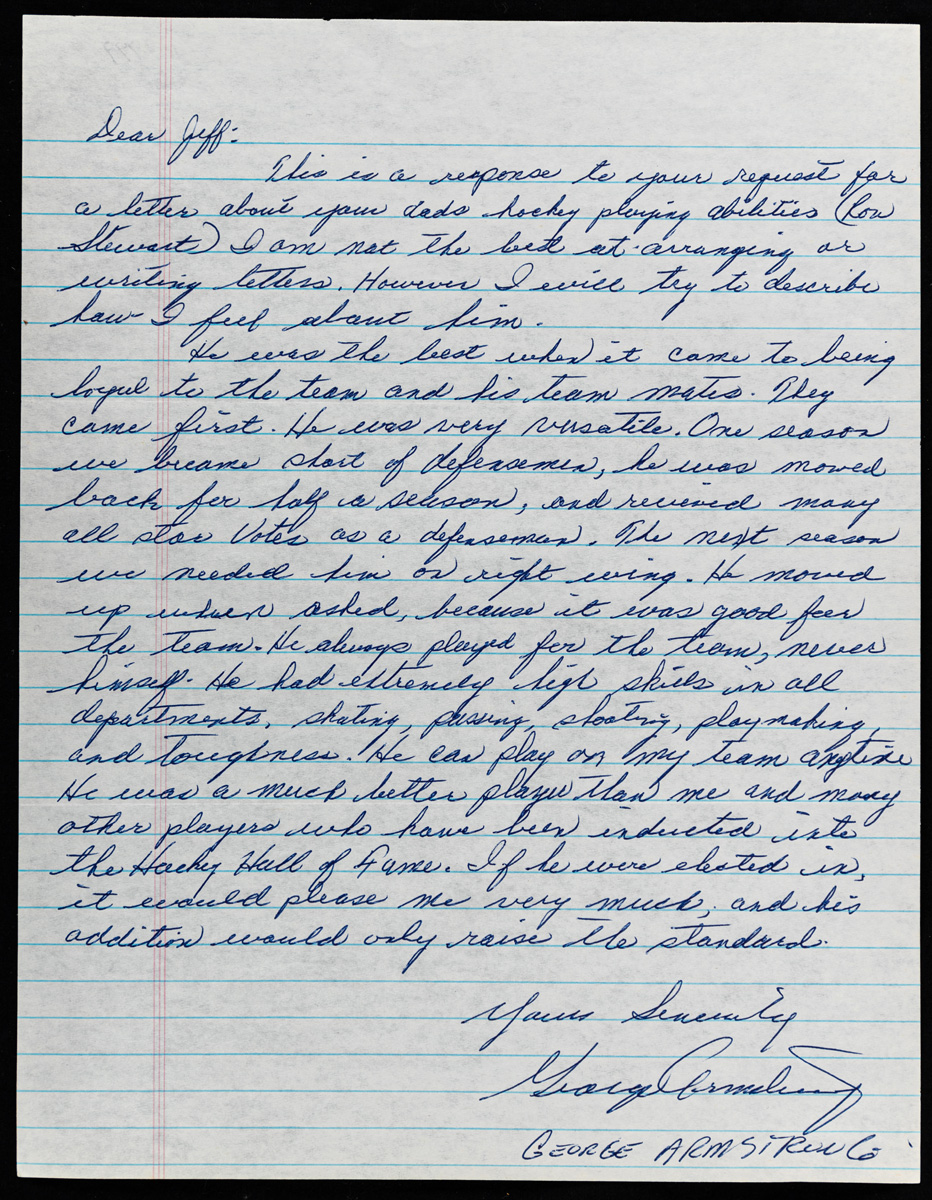 Dear Jeff:
This is a response to your request for
a letter about your dads hockey playing abilities (Ron
Stewart) I am not the best at arranging or
writing letters. However I will try to describe
how I feel about him.
He was the best when it came to being
loyal to the team and his team mates. They
came first. He was very versatile. One season
we became short of defensemen, he was moved
back for half a season, and recieved many
all star votes as a defenseman. The next season
we needed him on right wing. He moved
up when asked, because it was good for
the team. He always played for the team, never
himself. He had extremely high skills in all
departments, skating, passing, shooting, playmaking,
and toughness. He can play on my team anytime
He was a much better player than me and many
other players who have been inducted into
the Hocky Hall of Fame. If he were elected in,
it would please me very much, and his
addition would only raise the standard.
Yours Sincerely
George Armstrong
GEORGE ARMSTRONG